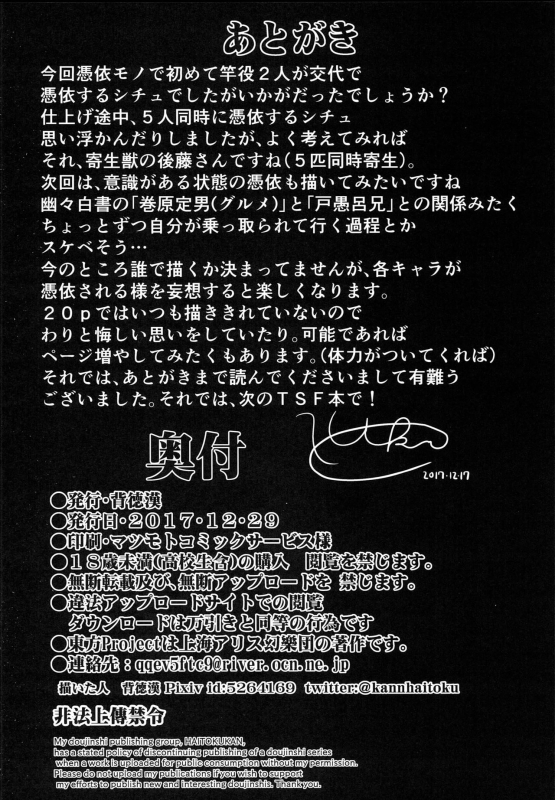 あとがき
今回憑依モノで初めて竿役２人が交代で
憑依するシチュでしたがいかがだったでしょうか？
仕上げ途中、５人同時に憑依するシチュ
思い浮かんだりしましたが、よく考えてみれば
それ、寄生獣の後藤さんですね(５匹同時寄生)。
次回は、意識がある状態の憑依も描いてみたいですね
幽々白書の「巻原定男(グルメ)」と「戸愚呂兄」との関係みたく
ちょっとずつ自分が乗っ取られて行く過程とか
スケベそう…
今のところ誰で描くか決まってませんが、各キャラが
憑依される様を妄想すると楽しくなります。
２０ｐではいつも描ききれていないので
わりと悔しい思いをしていたり。可能であれば
ページ増やしてみたくもあります。(体力がついてくれば)
それでは、あとがきまで読んでくださいまして有難う
ございました。それでは、次のＴＳＦ本で！
2017.12.17
奥付
○発行・背徳漢
○発行日・２０１７・１２・２９
○印刷・マツモトコミックサービス様
○１８歳未満(高校生含)の購入　閲覧を禁じます。
○無断転載及び、無断アップロードを 禁じます。
○違法アップロードサイトでの閲覧
ダウンロードは万引きと同等の行為です
○東方Projectは上海アリス幻樂団の著作です。
○連絡先：qqev5ftc9@river.ocn.ne.jp
描いた人　背徳漢 Pixiv id:5264169　twitter:@kannhaitoku
非法上傳禁令
My doujinshi publishing group, HAITOKUKAN,
has a stated policy of discontinuing publishing of a doujinshi series
when a work is uploaded for public consumption without my permission.
Please do not upload my publications if you wish to support
my efforts to publish new and interesting doujinshis. Thank you.